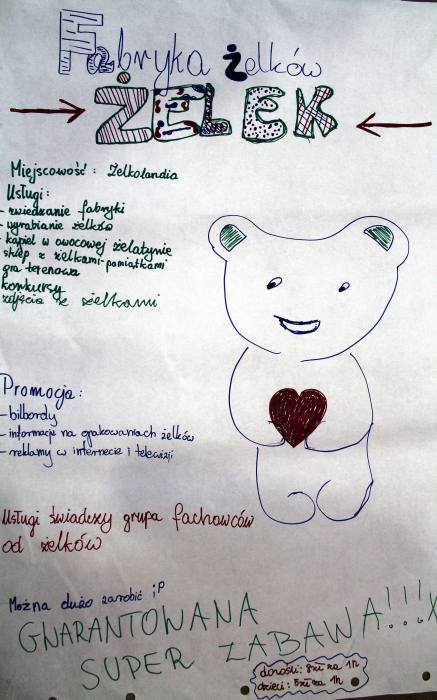 Fabryka żelków
ŻELEK
Miejscowość: Żelkolandia
Usługi:
- zwiedzanie fabryki
- wyrabianie żelków
- kąpiel w owocowej żelatynie
sklep z żelkami-pamiątkami
gra terenowa
konkursy
zdjęcia z żelkami
Promocja:
- bilbordy
- informacje na opakowaniach żelków
- reklamy w internecie i telewizji
Usługi świadczy grupa fachowców
od żelków
Można dużo zarobić ;P
GWARANTOWANA
SUPER ZABAWA!!!
dorośli: 8zł za 1h
dzieci: 5zł za 1h